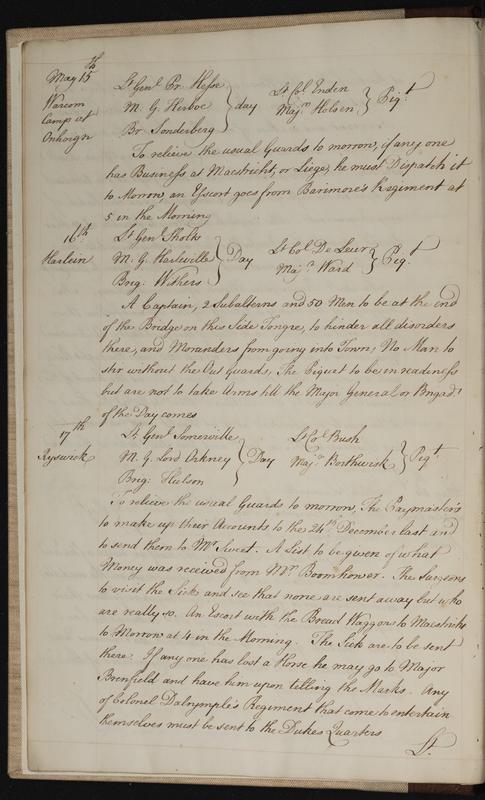 May 15th
Lt Genl Pr. Hesse
M. G. Herboe } day
Br. Sonderberg
Lt Col Enden
Majr Holsen } Piqt
Warcom
Camp at
To relieve the usual Guards to morrow, if any one
has Business at Maestricht, or Liege, he must Dispatch it
to Morrow, an Escort goes from Barimore's Regiment at
5 in the Morning
16th
Harlein
Lt Genl Sholts
M. G. Harleville } Day
Brig: Withers
Lt Col De Leur
Majr Ward } Piqt
A Captain, 2 Subalterns and 50 Men to be at the end
of the Bridge on this Side Tongre, to hinder all disorders
there, and Moranders from going into Town, No Man to
stir without the Out Guards, The Piquet to be in readiness
but are not to take Arms till the Major General or Brigadr
of the Day comes
17th
Ryswick
Lt Genl Somerville
M. G. Lord Orkney } Day
Brig: Hulson
Lt Col Bush
Majr Borthwick } Piqt
To relieve the usual Guards to morrow, The Paymasters
to make up their Accounts to the 24th December last and
to send them to Mr Sweet. A List to be given of what
Money was received from Mr Boomhower. The Surgeons
to visit the Sick and see that none are sent away but who
are really so. An Escort with the Bread Waggons to Maestricht
to Morrow at 4 in the Morning. The Sick are to be sent
there. If any one has lost a Horse he may go to Major
Benfield and have him upon telling the Marks. Any
of Colonel Dalrymple's Regiment that come to entertain
themselves must be sent to the Dukes Quarters
Lt